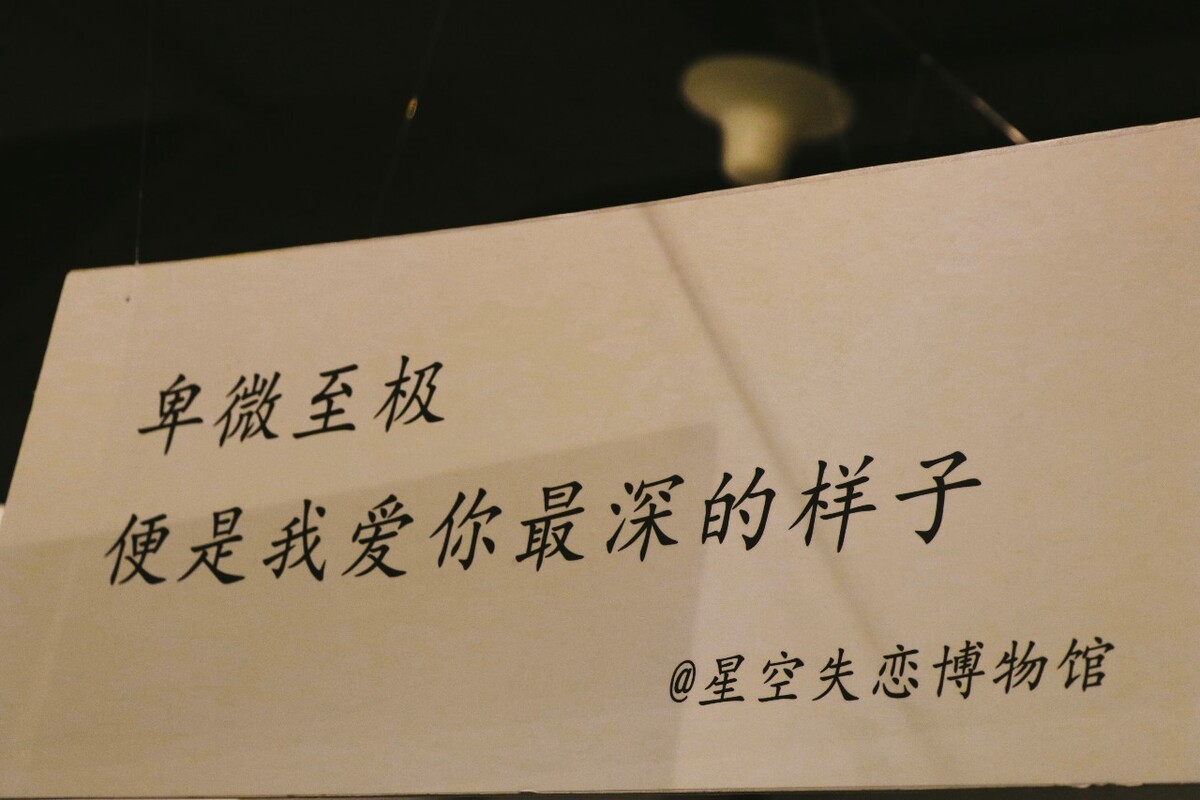 卑微至极
便是我爱你最深的样子
@星空失恋博物馆